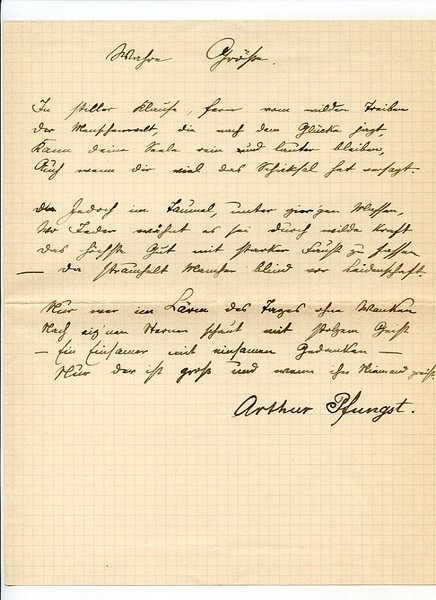 Wahre Größe.
In stiller Klause, fern vom wilden Treiben
Der Menschenwelt, die nach dem Glücke jagt,
Kann deine Seele rein und lauter bleiben,
Auch wenn dir viel das Schicksal hat versagt.
Jedoch im Taumel, unter gier'gen Massen,
Wo Jeder wähnet es sei durch wilde Kraft
Das höchste Gut mit starker Faust zu fassen
— Da strauchelt Mancher blind vor Leidenschaft.
Nur wer im Lärm des Tages ohne Wanken
Nach eig'nen Sternen schaut mit stolzem Geist
— Ein Einsamer mit einsamen Gedanken —
Nur der ist groß und wenn ihn Niemand preist.
Arthur Pfungst.